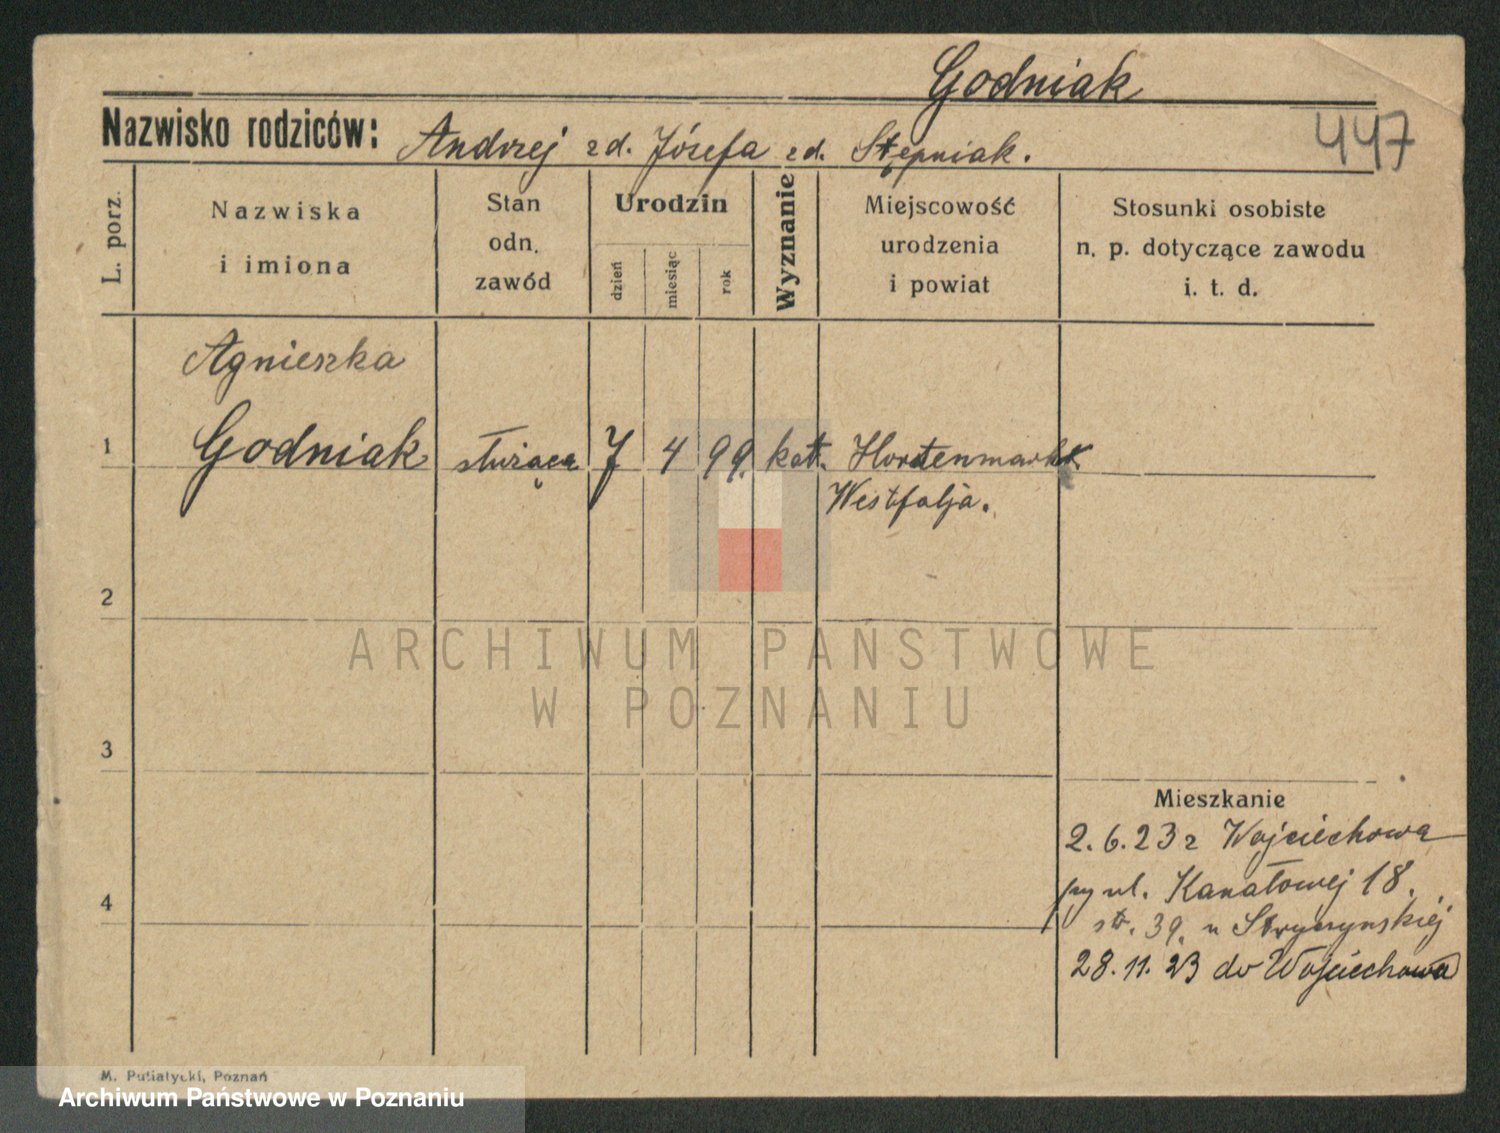 Godniak
Nazwisko rodziców: Andrzej zd. Józefa zd. Stępniak.
447
L. porz.
Nazwiska
i imiona
Stan
odn.
zawód
Urodzin
dzień
miesiąc
rok
Wyznanie
Miejscowość
urodzenia
i powiat
Stosunki osobiste
n. p. dotyczące zawodu
i. t. d.
Agnieszka
1 Godniak służąca 7 4 99. kat. Hordenmark
Westfalja.
2
3
4
Mieszkanie
2.6.23 z Wojciechowa
ul. Kanałowej 18.
str. 39. u Stryczyńskiéj
28.11.23 do Wojciechowa
M. Putiatycki, Poznań
ARCHIWUM PAŃSTWOWE
W POZNANIU
Archiwum Państwowe w Poznaniu